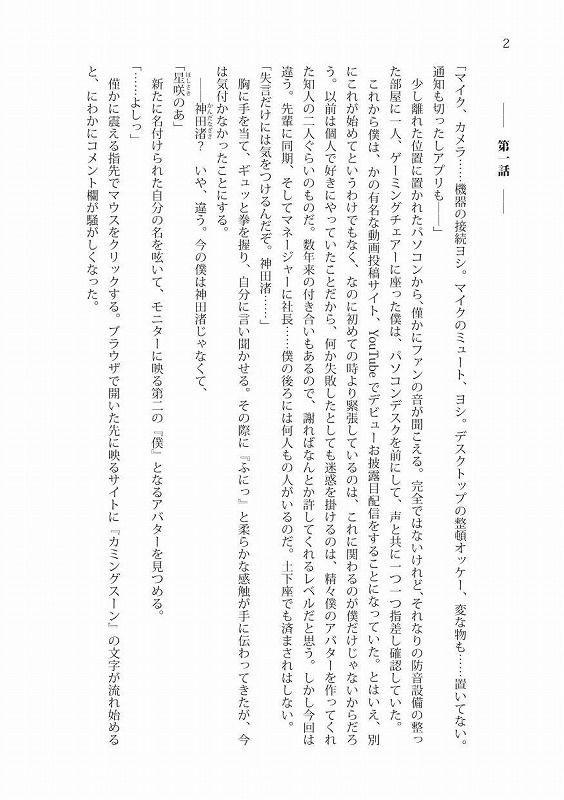 2
―― 第一話 ――
「マイク、カメラ……機器の接続ヨシ。マイクのミュート、ヨシ。デスクトップの整頓オッケー、変な物も……置いてない。
通知も切ったしアプリも――」
少し離れた位置に置かれたパソコンから、僅かにファンの音が聞こえる。完全ではないけれど、それなりの防音設備の整っ
た部屋に一人、ゲーミングチェアーに座った僕は、パソコンデスクを前にして、声と共に一つ一つ指差し確認していた。
これから僕は、かの有名な動画投稿サイト、YouTubeでデビューお披露目配信をすることになっていた。とはいえ、別
にこれが始めてというわけでもなく、なのに初めての時より緊張しているのは、これに関わるのが僕だけじゃないからだろ
う。以前は個人で好きにやっていたことだから、何か失敗したとしても迷惑を掛けるのは、精々僕のアバターを作ってくれ
た知人の二人ぐらいのものだ。数年来の付き合いもあるので、謝ればなんとか許してくれるレベルだと思う。しかし今回は
違う。先輩に同期、そしてマネージャーに社長……僕の後ろには何人もの人がいるのだ。土下座でも済まされはしない。
「失言だけには気をつけるんだぞ。神田渚……」
胸に手を当て、ギュッと拳を握り、自分に言い聞かせる。その際に『ふにっ』と柔らかな感触が手に伝わってきたが、今
は気付かなかったことにする。
――神田渚？　いや、違う。今の僕は神田渚じゃなくて、
「星咲のあ」
新たに名付けられた自分の名を呟いて、モニターに映る第二の『僕』となるアバターを見つめる。
「……よしっ」
僅かに震える指先でマウスをクリックする。ブラウザで開いた先に映るサイトに『カミングスーン』の文字が流れ始める
と、にわかにコメント欄が騒がしくなった。